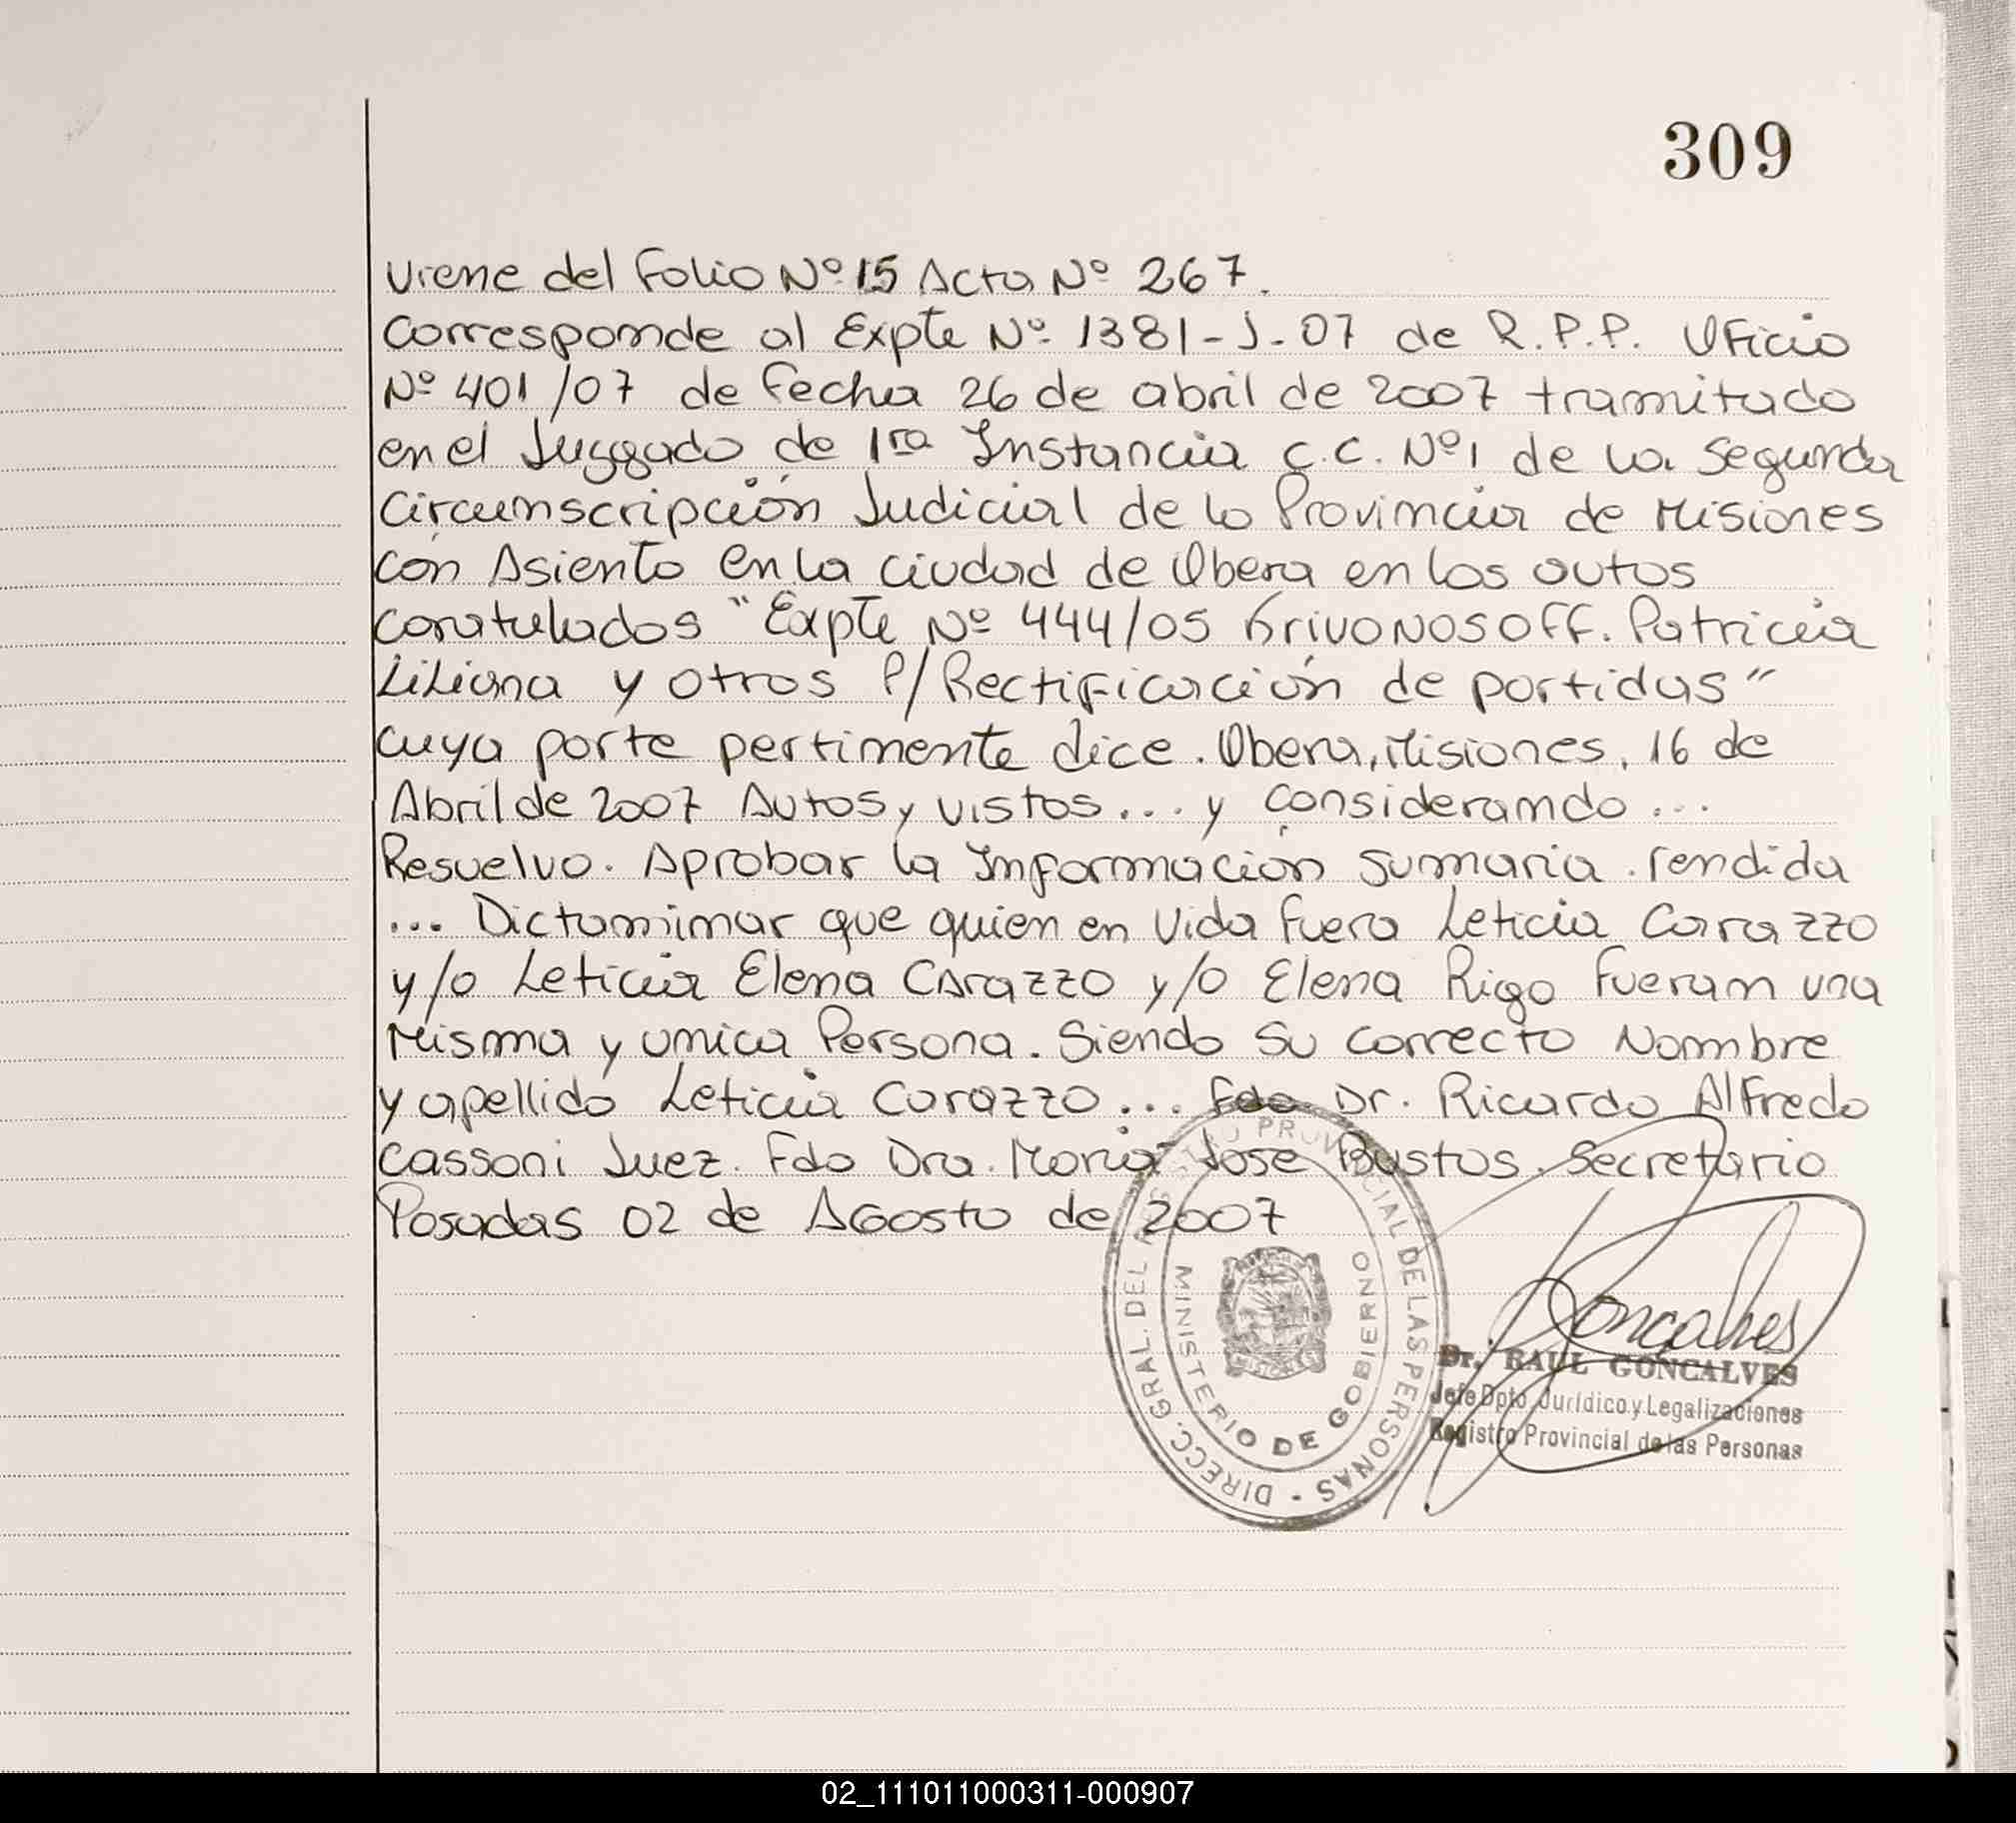 309
Viene del Folio Nº 15 Acta Nº 267.
Corresponde al Expte Nº 1381-J-07 de R.P.P. Oficio
Nº 401/07 de fecha 26 de abril de 2007 tramitado
en el Juzgado de 1ra Instancia C.C. Nº1 de la Segunda
Circunscripción Judicial de la Provincia de Misiones
con Asiento en la ciudad de Obera en los autos
caratulados "Expte Nº 444/05 Krivonosoff. Patricia
Liliana y otros P/Rectificación de partidas"
cuya parte pertinente dice. Obera, Misiones, 16 de
Abril de 2007 Autos y vistos... y considerando ...
Resuelvo. Aprobar la Información sumaria. rendida
... Dictaminar que quien en vida fuera Leticia Carazzo
y/o Leticia Elena Carazzo y/o Elena Rigo fueran una
Misma y unica Persona. Siendo su correcto Nombre
y apellido Leticia Carazzo ... Fdo Dr. Ricardo Alfredo
Cassoni Juez. Fdo Dra. Maria Jose Bustos. Secretario
Posadas 02 de Agosto de 2007
DIRECC. GRAL. DEL REGISTRO PROVINCIAL DE LAS PERSONAS -
MINISTERIO DE GOBIERNO
Goncalves
Dr. RAUL GONCALVES
Jefe Dpto. Jurídico y Legalizaciones
Registro Provincial de las Personas
02_111011000311-000907